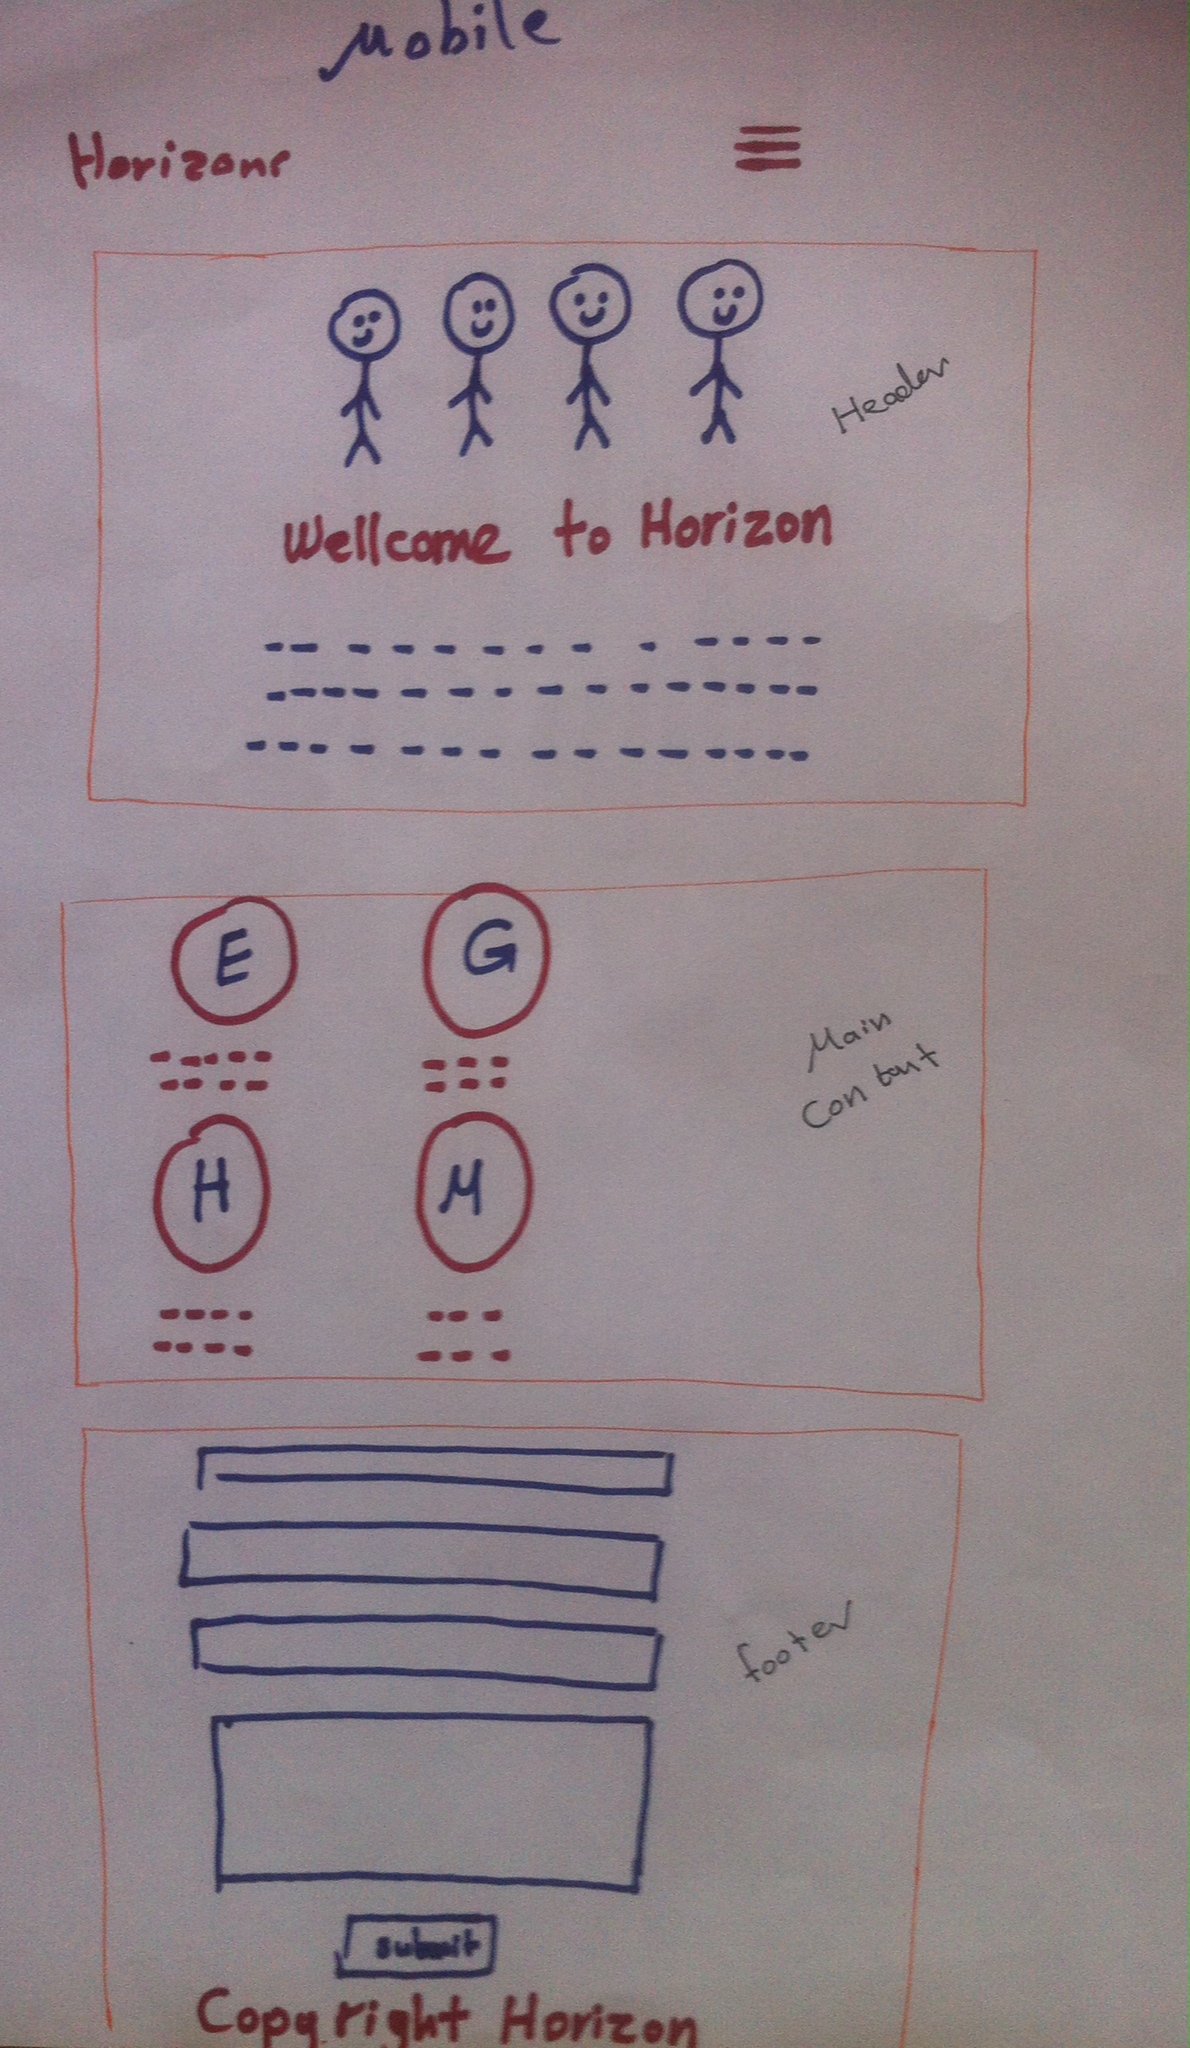 Mobile
Horizons
Header
Wellcome to Horizon
E G
Main
Contant
H M
footer
submit
Copyright Horizon